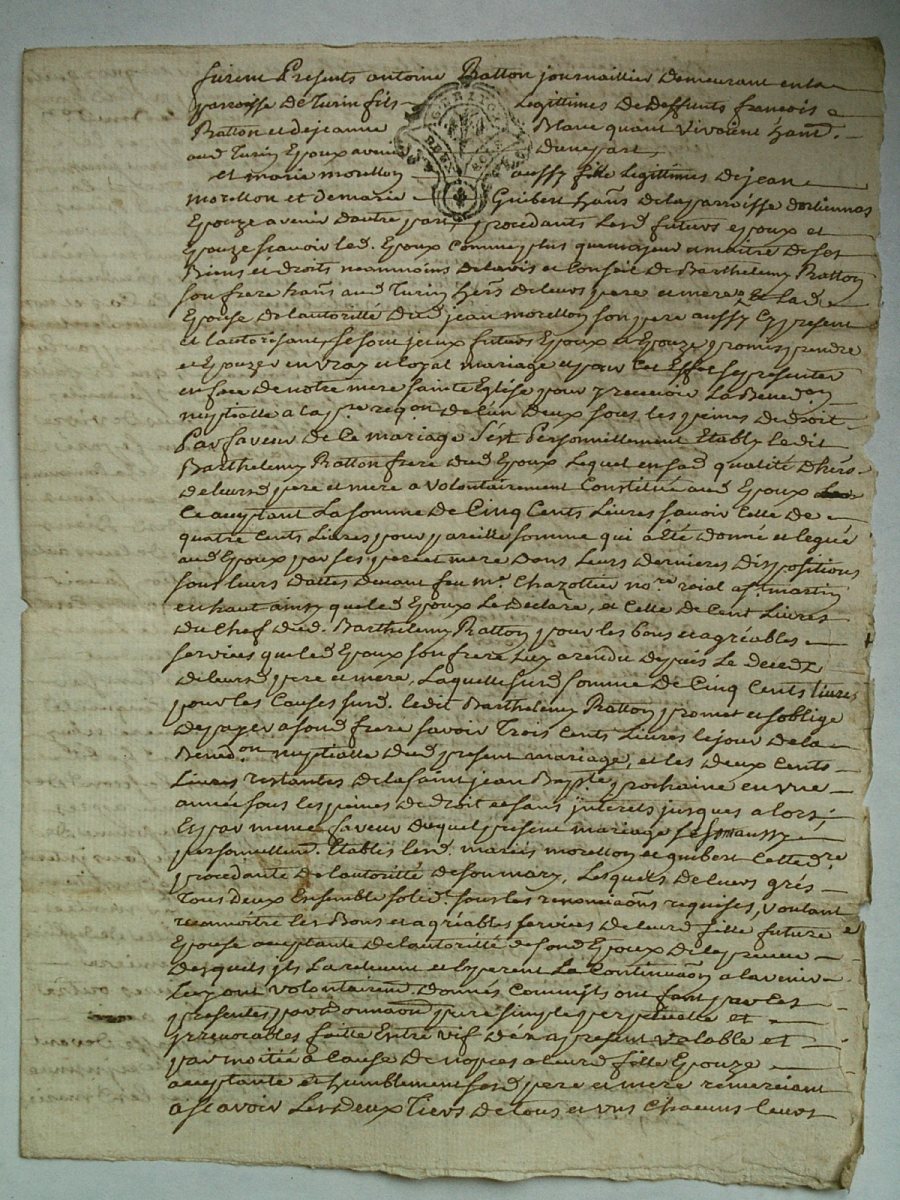 furent Presents antoine Ratton journaillier Demeurant en la
parroisse De Turin fils Legittimes de deffunts francois
Ratton et de jeanne Blanc quant vivoient han.
aud Turin Epoux avenir Dune part,
et marie moretton aussy fille Legittimes De jean
moretton et de marie Guibert hans De la parroisse dorliennas
Epouze avenir Dautre part, procedants Lesd futurs epoux et
Epouze scavoir led. Epoux comme plus que majeur et maitre De ses
Biens et droits neammoins De lavis et Conseil De Barthelemy Ratton
son frere hans aud Turin hers De leurs pere et mere, Et Lad
Epouse De Lautoritté Dud jean moretton son pere aussy Cy present
et Lautorisant, se sont jceux futurs Epoux et Epouze promis prendre
et Epouzer en vray et loyal mariage et pour Cet Effet se presenter
en face De notre mere Sainte Eglise pour y recevoir La Bened.on
nuptialle a la p.re req.on De Lun Deux sous les peines De droit
Par faveur De Ce mariage s'est Personnellement Etably ledit
Barthelemy Ratton frere dud Epoux Lequel en sad qualité Dhers
De leursd pere et mere a volontairement Constitué aud Epoux
Ce acceptant La somme De Cinq Cents Livres savoir Celle De
quatre Cents Livres pour pareille somme qui a Eté donné et legué
aud Epoux par ses pere et mere Dans Leurs Dernieres Dispositions
sous leurs Dattes Devant feu m.e Chazottier no.re roial a s.t martin
en haut ainsy que led Epoux Le Declare, et Celle de Cent Livres
Du Chef Dud. Barthelemy Ratton pour les bons et agréables
services que led Epoux son frere Luy a rendu Depuis Le decedz
De leursd pere et mere, Laquelle surd somme De Cinq Cents livres
pour les Causes susd. ledit Barthelemy Ratton promet et soblige
De payer a sond frere savoir Trois Cents Livres le jour De la
Bened.on nuptialle Dud present mariage, et les Deux Cents
Livres restantes De la saint jean Bapte prochaine en une
année sous les peines De droit et sans interets jusques alors;
Et par meme faveur Duquel present mariage se sont aussy
personnellem.t Etablis lesd. mariés moretton et guibert Cette d.re
procedante De lautoritté De son mary, Lesquels De leurs grés
Tous deux Ensemble solid. sous les renonciaons requises, voulant
reconnoitre les Bons et agréables services De leurd fille future
Epouse acceptante De Lautoritté de sond Epoux De la preuve
Desquels jls La relevent et Esperent La Continuaon a lavenir
Luy ont volontairem Donnés Comm'jls ont font par les
presentes par Donnaon pure simple perpetuelle et
jrrevocables faitte Entre vif Dés a present valable et
par moitié a Cause De nopces a leurd fille Epouze
acceptante et humblement sesd pere et mere remerciant
a scavoir Les Deux Tiers De tous et uns Chacuns leurs